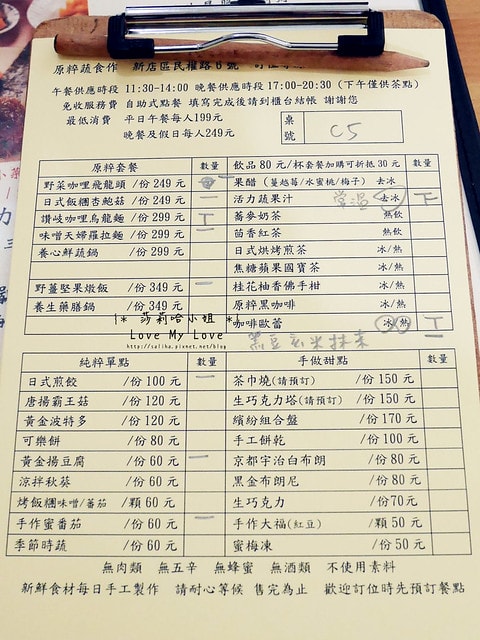 原粹蔬食作 新店區民權路6號
午餐供應時段 11:30-14:00 晚餐供應時段 17:00-20:30 (下午僅供茶點)
免收服務費 自助式點餐 填寫完成後請到櫃台結帳 謝謝您
最低消費 平日午餐每人199元
晚餐及假日每人249元
桌號 C5
原粹套餐 數量
野菜咖哩飛龍頭 /份 249 元
日式飯糰杏鮑菇 /份 249 元 一
讚岐咖哩烏龍麵 /份 299 元 丅
味噌天婦羅拉麵 /份 299 元 一
養心鮮蔬鍋 /份 299 元
野薑堅果燉飯 /份 349 元 一
養生藥膳鍋 /份 349 元
飲品 80 元/杯套餐加購可折抵 30 元 數量
果醋 (蔓越莓/水蜜桃/梅子) 去冰
活力蔬果汁 常溫 去冰 丅
蕎麥奶茶 熱飲
茴香紅茶 熱飲
日式烘烤煎茶 冰/熱
焦糖蘋果國寶茶 冰/熱
桂花柚香佛手柑 冰/熱
原粹黑咖啡 冰/熱
咖啡歐蕾 冰/熱
黑豆玄米抹茶
|* 莎莉哈小姐 *|
Love My Love
http://saliha.pixnet.net/blog
純粹單點 數量
日式煎餃 /份 100 元 一
唐揚霸王菇 /份 120 元
黃金波特多 /份 120 元
可樂餅 /份 80 元
黃金揚豆腐 /份 60 元 一
涼拌秋葵 /份 60 元
烤飯糰味噌/蕃茄 /顆 60 元
手作蜜番茄 /份 60 元 一
季節時蔬 /份 60 元
手做甜點 數量
茶巾燒(請預訂) /份 150 元
生巧克力塔(請預訂) /份 150 元
繽紛組合盤 /份 170 元
手工餅乾 /份 100 元
京都宇治白布朗 /份 80 元
黑金布朗尼 /份 80 元
生巧克力 /份70元
手作大福(紅豆) /顆 50 元
蜜梅凍 /份 50 元
無肉類 無五辛 無蜂蜜 無酒類 不使用素料
新鮮食材每日手工製作 請耐心等候 售完為止 歡迎訂位時先預訂餐點